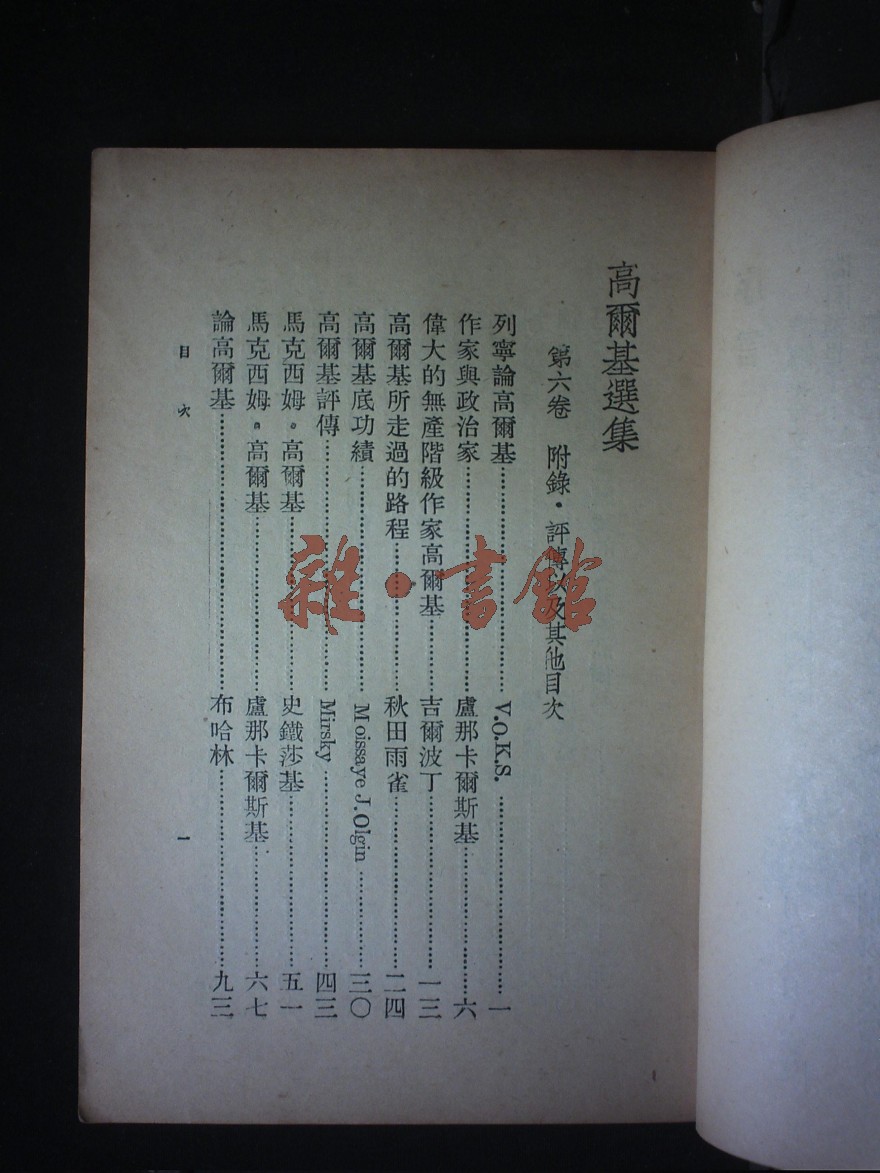 高爾基選集
第六卷 附錄・評傳以及其他目次
列寧論高爾基……V.O.K.S.……一
作家與政治家……盧那卡爾斯基……六
偉大的無產階級作家高爾基……吉爾波丁……一三
高爾基所走過的路程……秋田雨雀……二四
高爾基底功績……Moissaye J. Olgin……三〇
高爾基評傳……Mirsky……四三
馬克西姆。高爾基……史鐵莎基……五一
馬克西姆。高爾基……盧那卡爾斯基……六七
論高爾基……布哈林……九三
目次
一
雜・書館